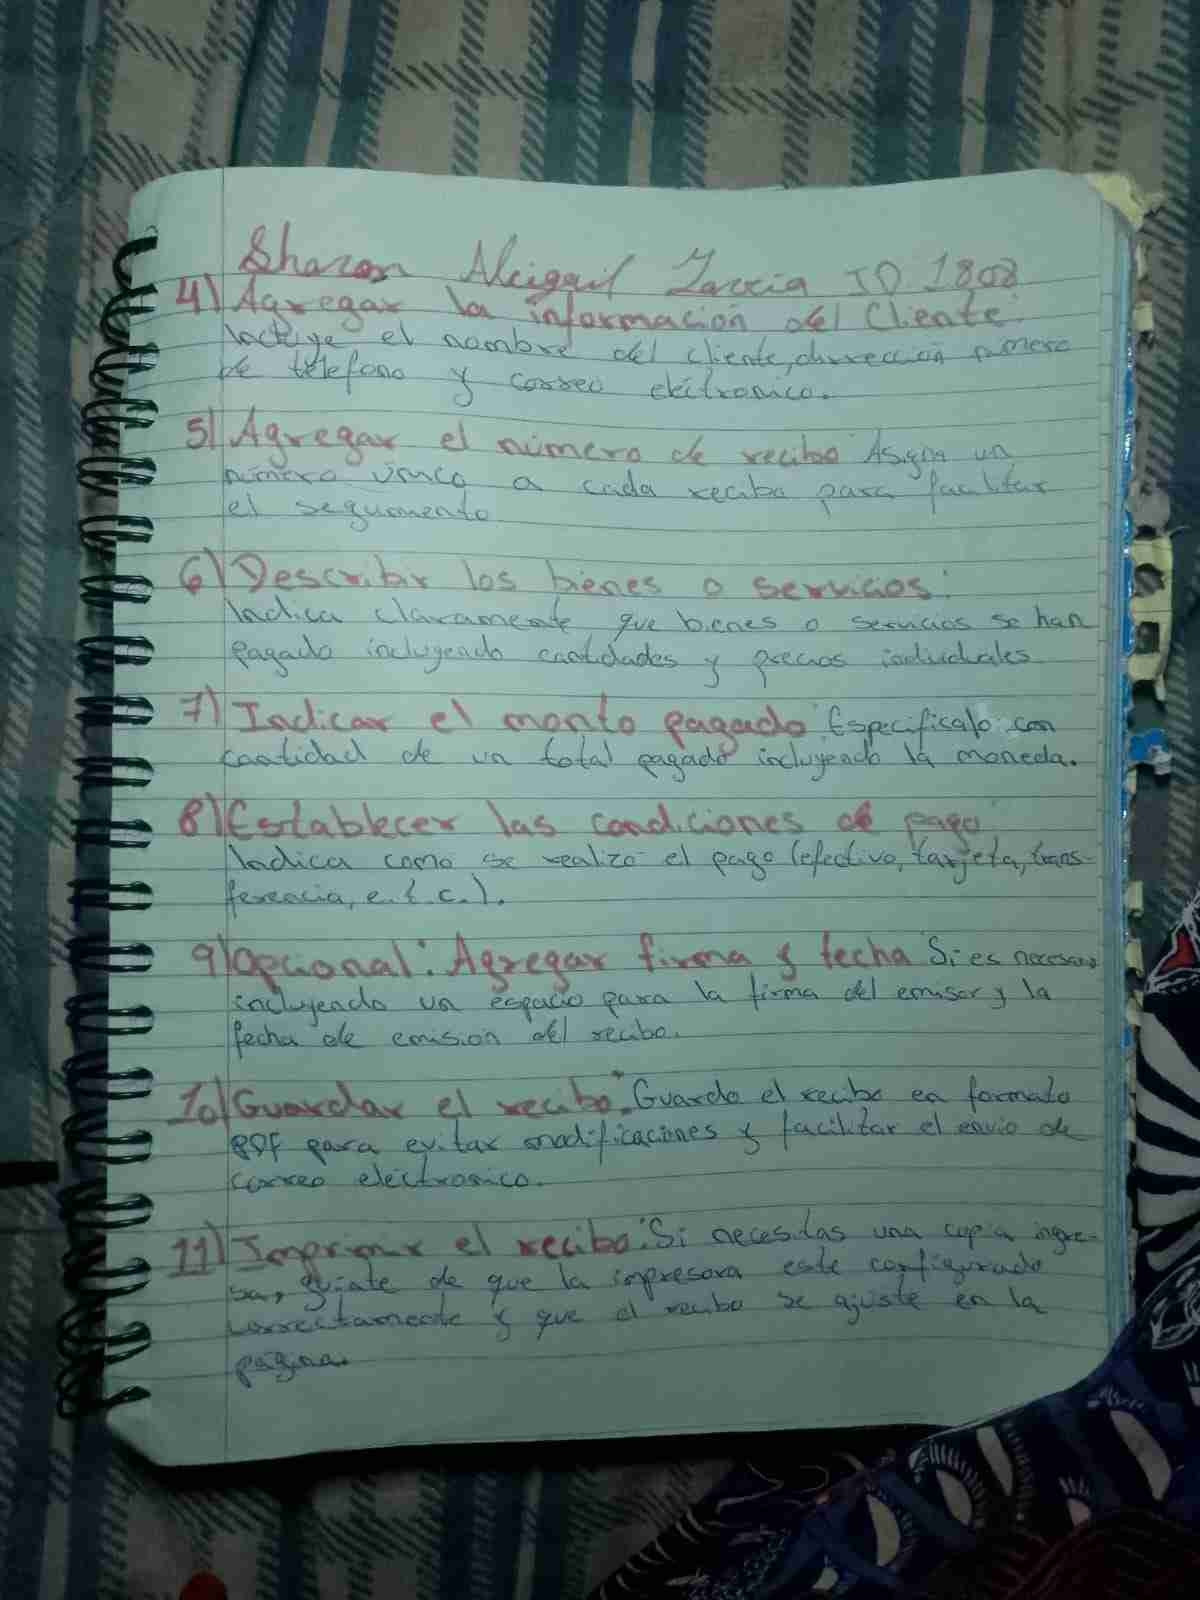 Sharon Alcigail Garcia ID 1808
4) Agregar la información del Cliente:
Incluye el nombre del cliente, dirrección numero
de télefono y correo eléctronico.
5) Agregar el número de recibo Asigna un
número único a cada recibo para facilitar
el seguimento
6) Describir los bienes o servicios:
Indica claramente que bienes o servicios se han
pagado incluyendo cantidades y precios individuales
7) Indicar el monto pagado: Especificalo con
cantidad de un total pagado incluyendo la moneda.
8) Establecer las condiciones de pago
Indica como se realizo el pago (efectivo, tarjeta, trans-
ferencia, e.t.c.).
9) Opcional: Agregar firma y fecha Si es necesario
incluyendo un espacio para la firma del emisor y la
fecha de emision del recibo.
10) Guardar el recibo: Guarda el recibo en formato
PDF para evitar modificaciones y facilitar el envio de
correo eléctronico.
11) Imprimir el recibo: Si necesitas una copia ingre-
sa, guiate de que la impresora este configurado
correctamente y que el recibo se ajuste en la
pagina.